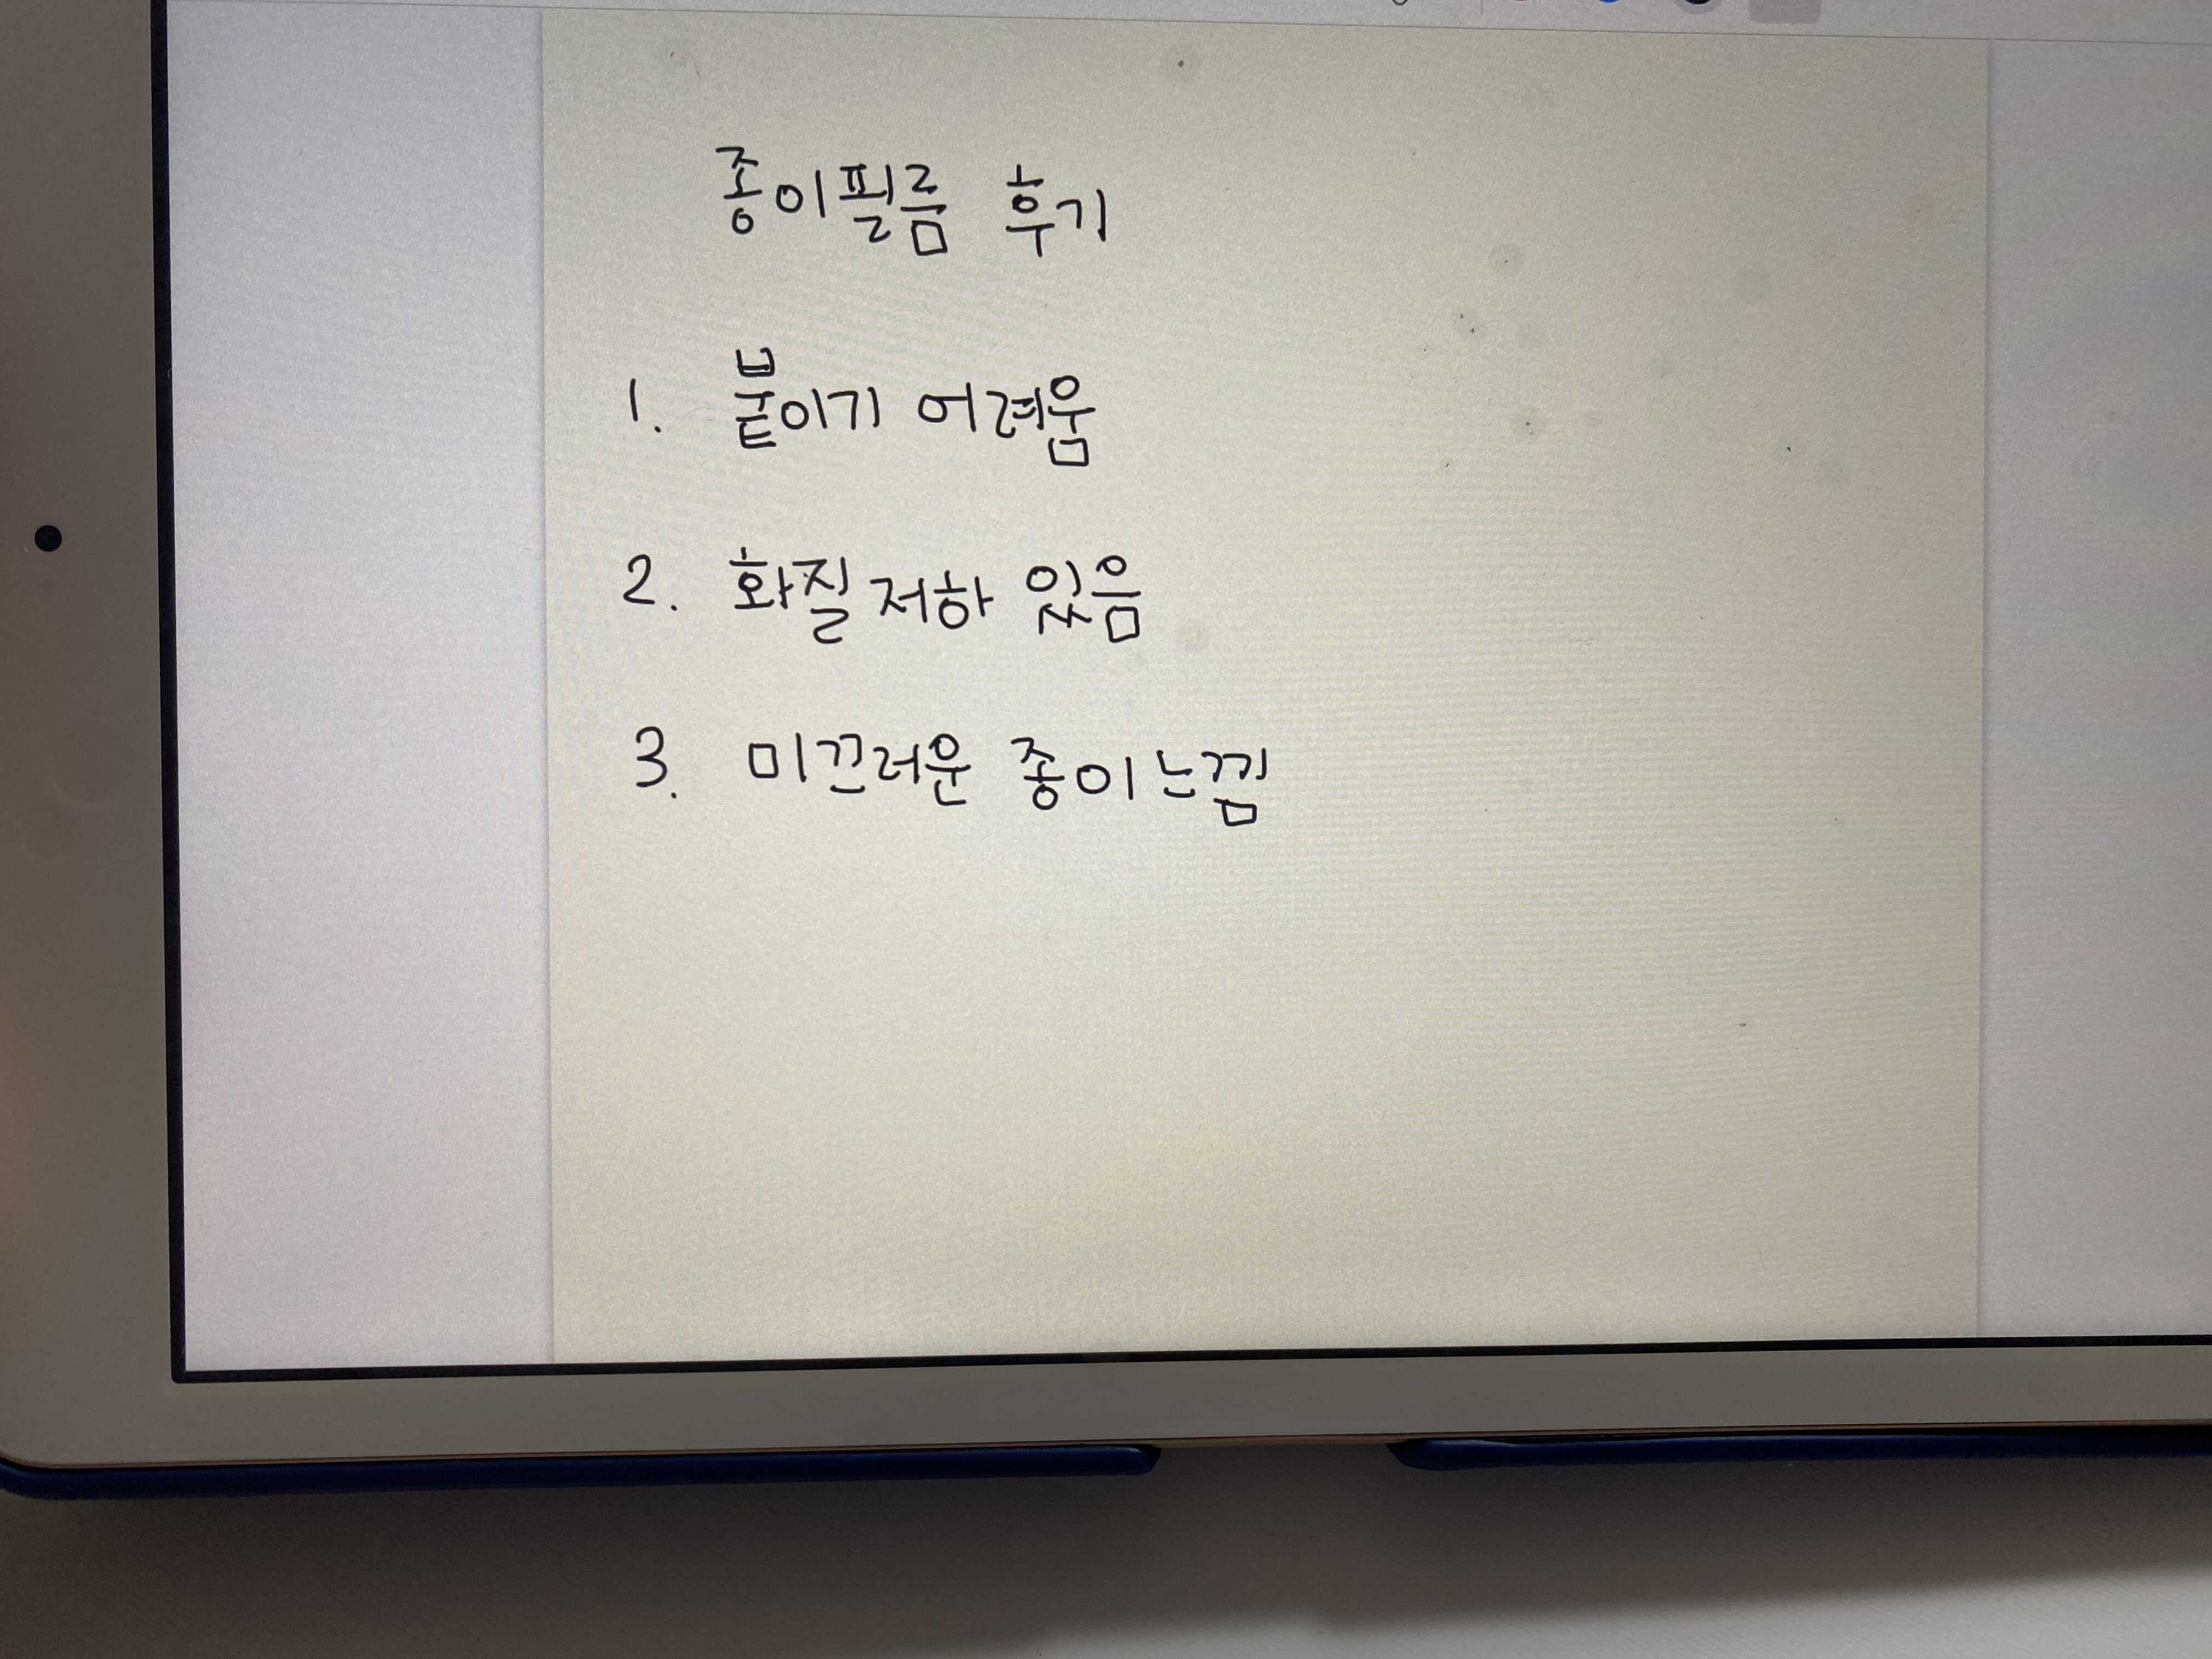 종이필름 후기
1. 붙이기 어려움
2. 화질 저하 있음
3. 미끄러운 종이 느낌